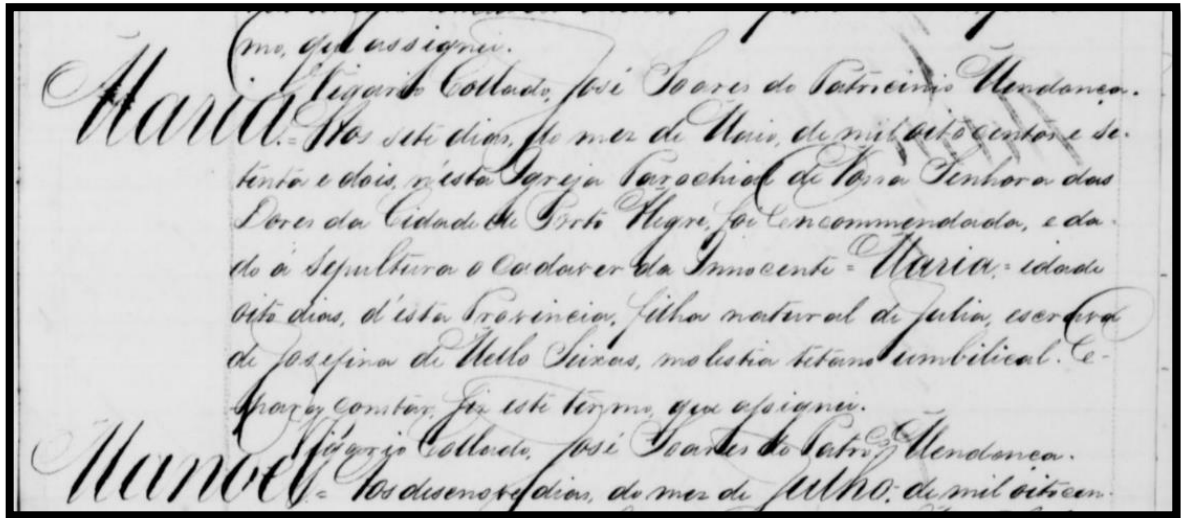 mo, que assignei.
Vigario Collado, José Soares do Patricinio Mendonça.
Maria.= Aos sete dias, do mez de Maio, de mil oitocentos e se-
tenta e dois, n'esta Igreja Parochial de Nossa Senhora das
Dores da Cidade de Porto Alegre, foi encommendada, e da-
do á sepultura o cadaver da Innocente = Maria = idade
oito dias, d'esta Provincia, filha natural de Julia, escrava
de Josefina de Mello Seixas, molestia tetano umbilical. E-
para constar, fiz este termo, que assignei.
Vigario Collado, José Soares do Patro Mendonça.
Manoel = Aos desenove dias, do mez de Julho, de mil oitocen-